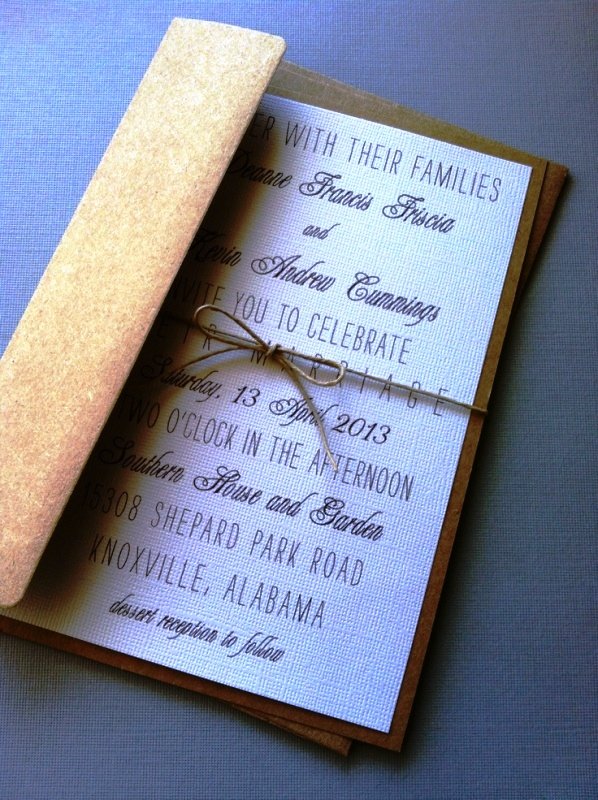 ER WITH THEIR FAMILIES
Deanne Francis Friscia
and
Kevin Andrew Cummings
VITE YOU TO CELEBRATE
EIR MARRIAGE
Saturday, 13 April 2013
TWO O'CLOCK IN THE AFTERNOON
Southern House and Garden
15308 SHEPARD PARK ROAD
KNOXVILLE, ALABAMA
dessert reception to follow